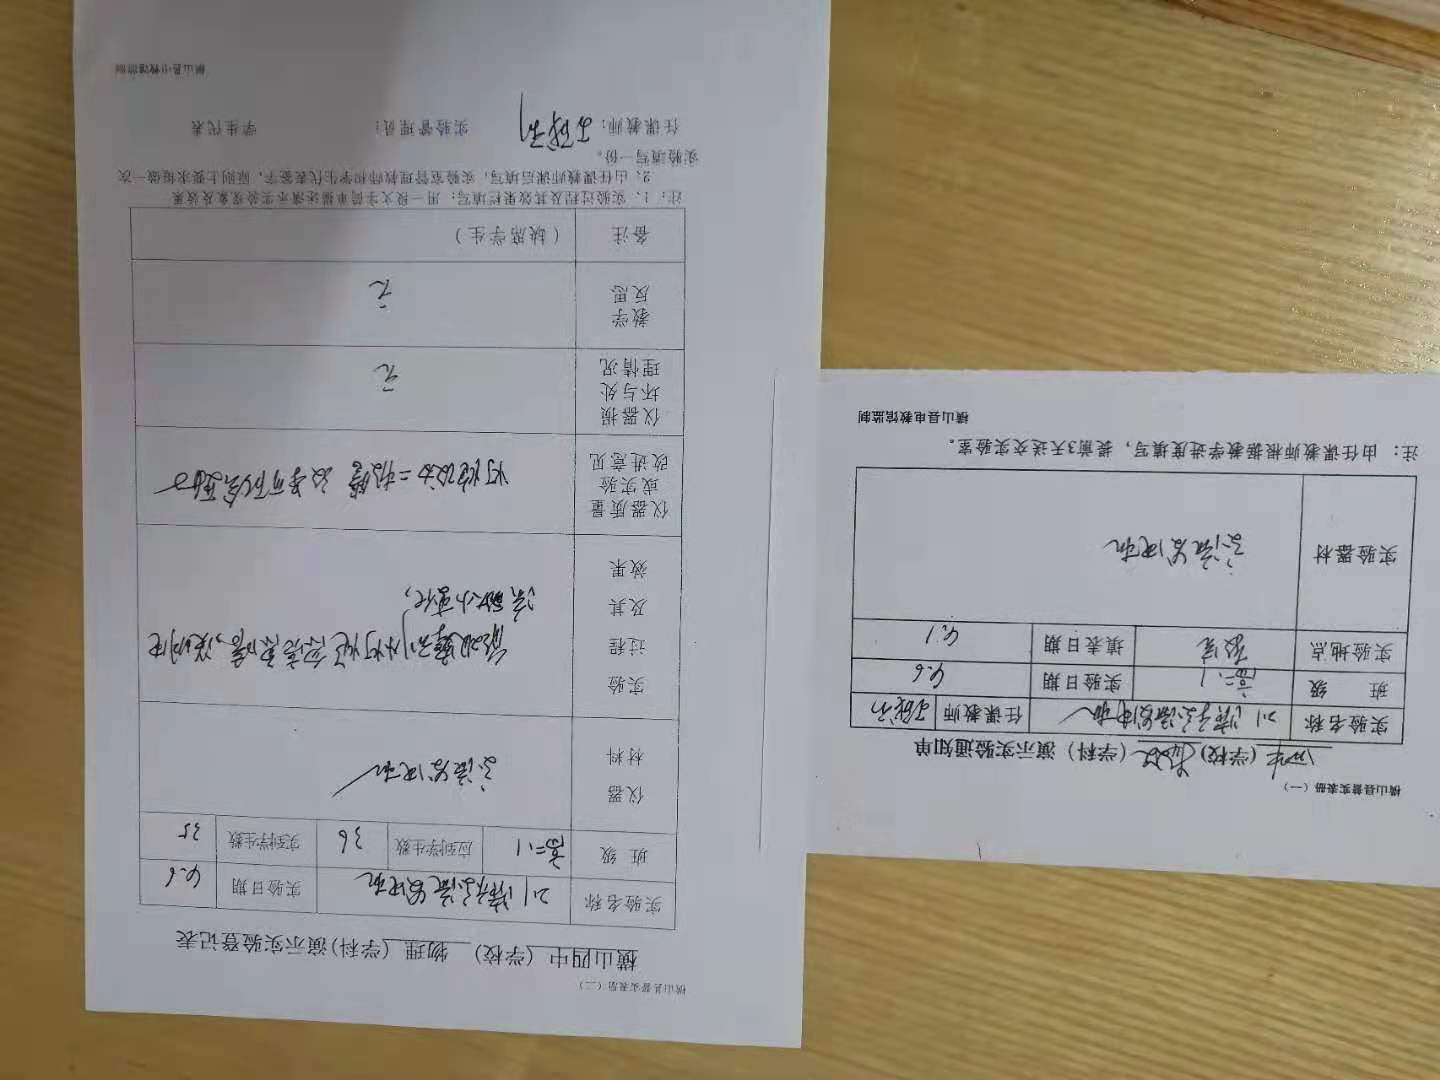 横山县普实表册（二）
横山四中（学校） 物理（学科）演示实验登记表
实验名称 观察交流发电机 实验日期 4.6
班 级 高二.1 应到学生数 36 实到学生数 35
仪器材料 交流发电机
实验过程及其效果
流的大小变化,
仪器质量或实验改进意见
仪器损坏与处理情况 无
教学反思 无
备注 （缺席学生）
注：1、实验过程及其效果栏填写：用一段文字简单描述演示实验现象及效果
2：由任课教师课后填写，实验室管理教师和学生代表签字，原则上要求每做一次
实验填写一份。
任课教师： 实验管理员： 学生代表
横山县电教馆监制
横山县普实表册（一）
四中（学校）物理（学科）演示实验通知单
实验名称 观察交流发电机 任课教师
班 级 高二.1 实验日期 4.6
实验地点 教室 填表日期 4.1
实验器材 交流发电机
注：由任课教师根据教学进度填写，提前3天送交实验室。
横山县电教馆监制